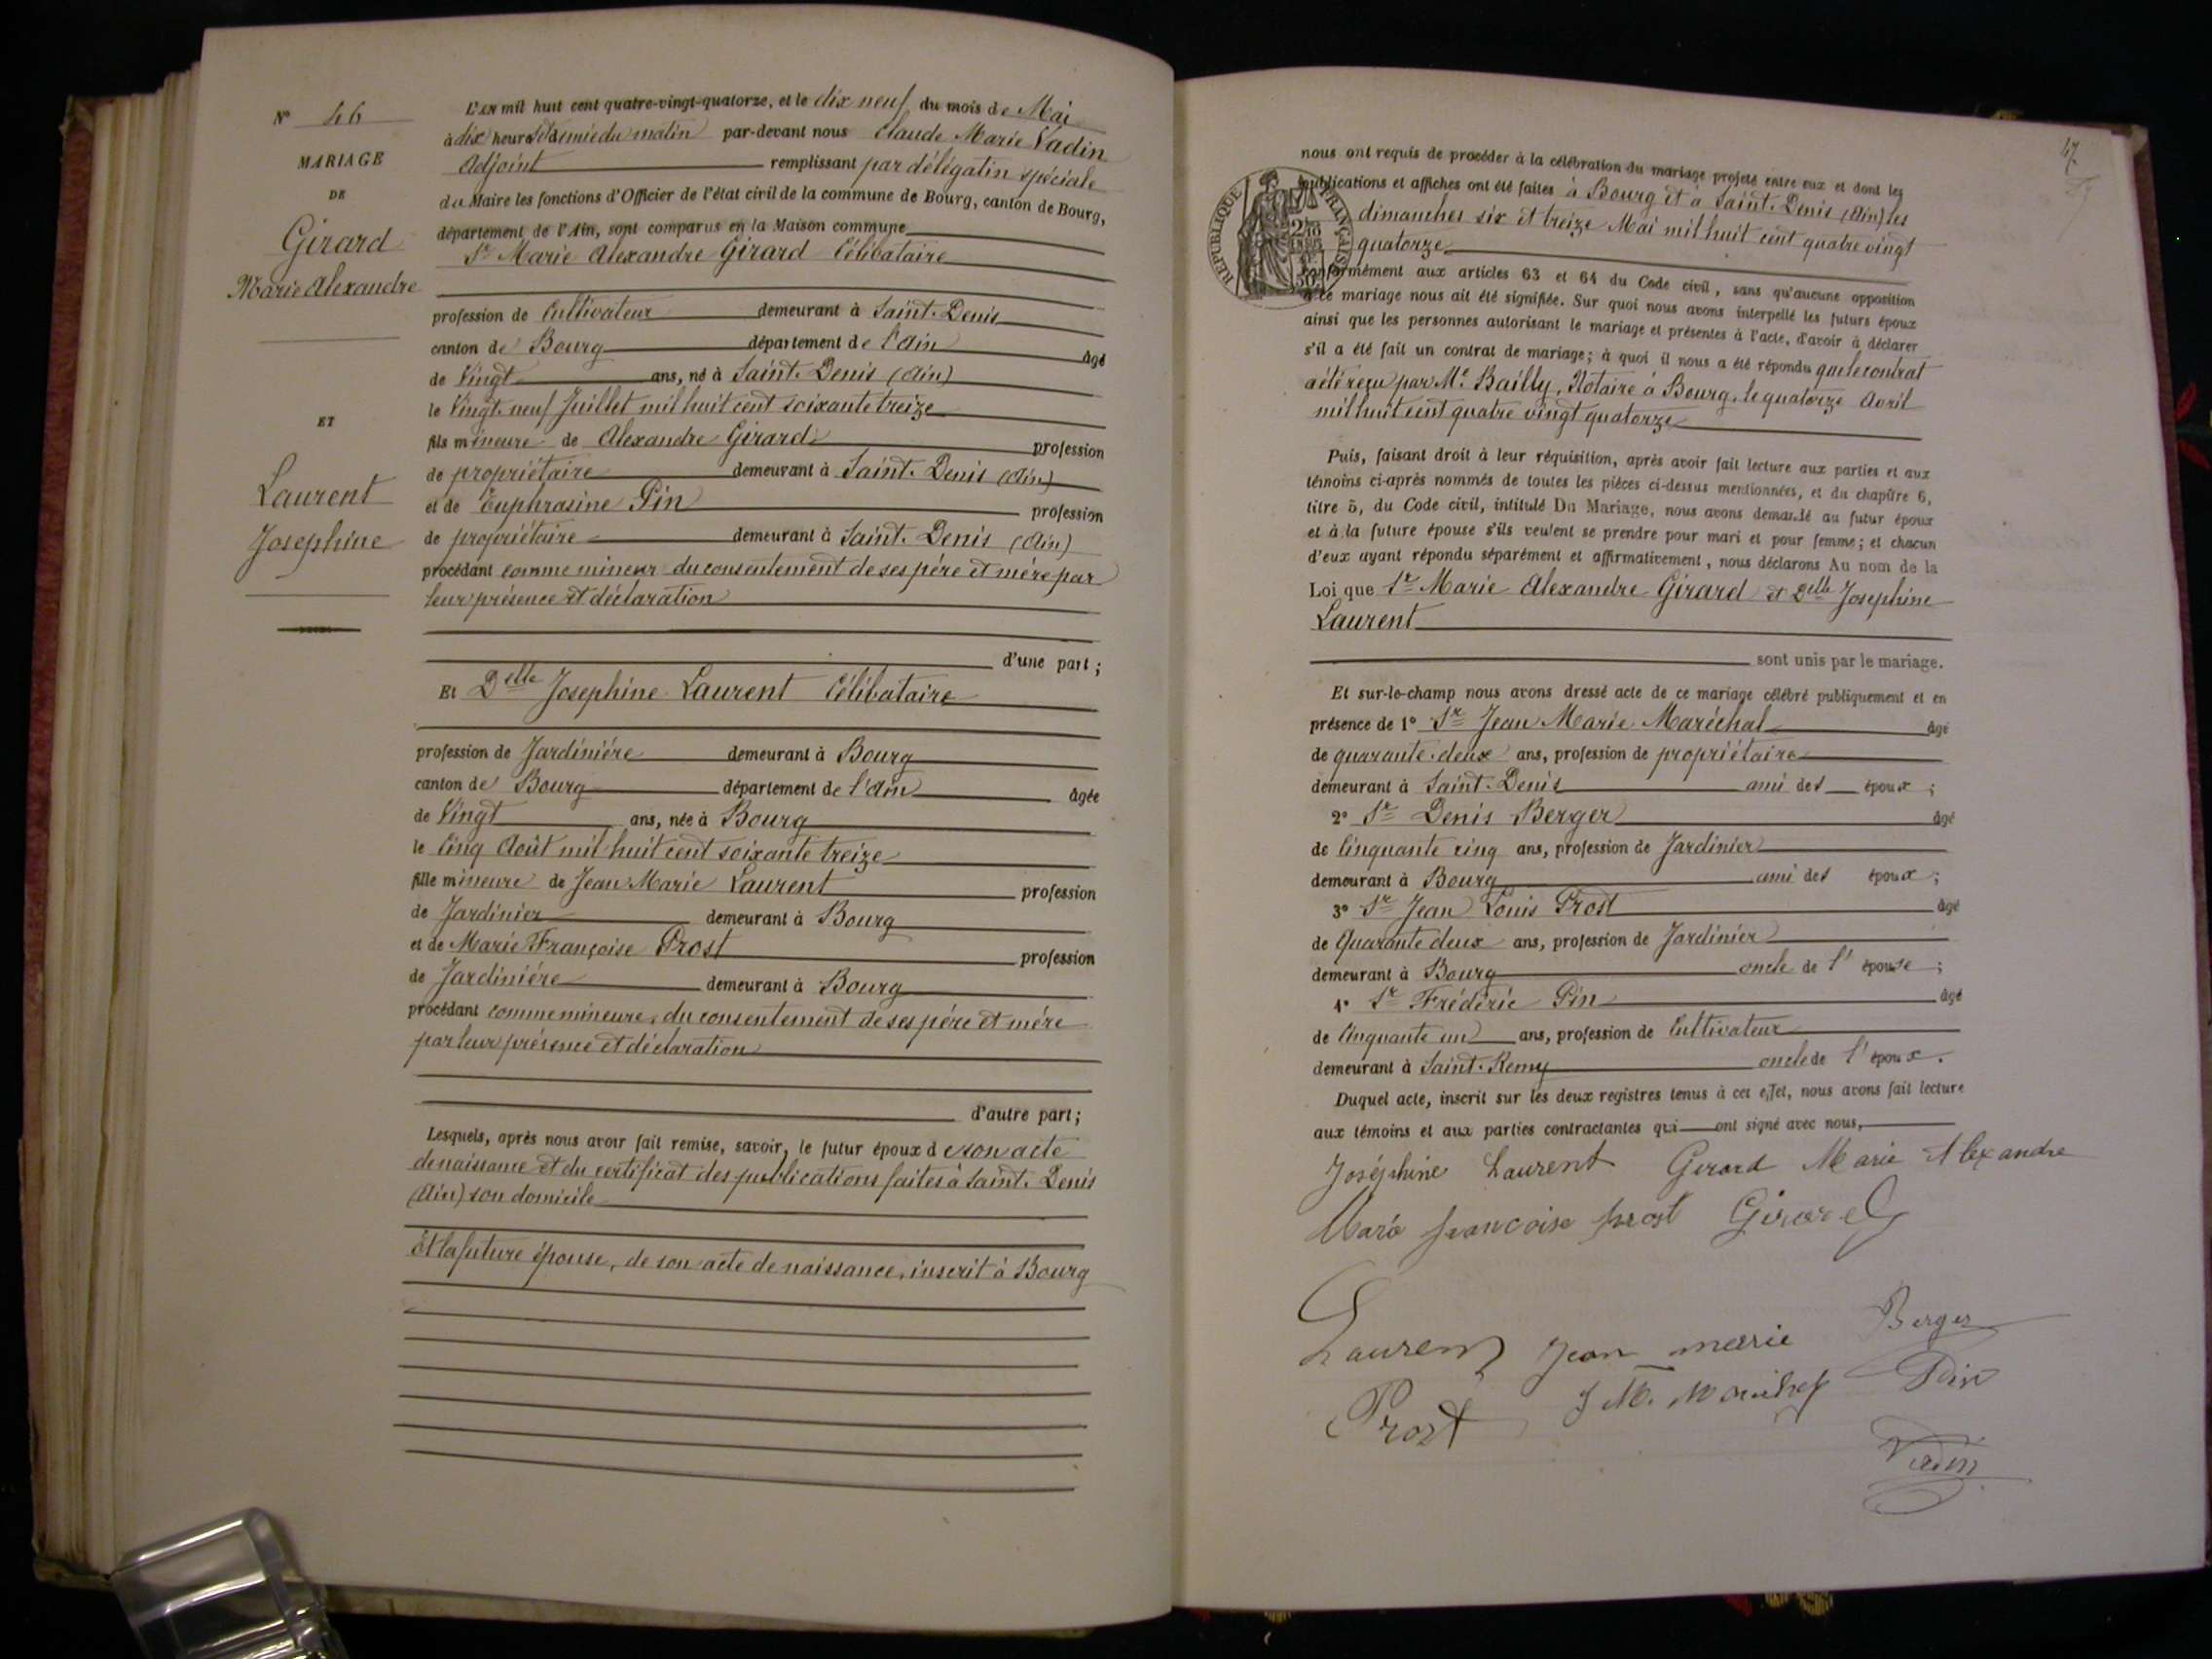 N° 46
MARIAGE
DE
Girard
Marie Alexandre
ET
Laurent
Josephine
L'AN mil huit cent quatre-vingt-quatorze, et le dix neuf du mois de Mai
à dix heures & demie du matin par-devant nous Claude Marie Vadin
Adjoint remplissant par délégation spéciale
du Maire les fonctions d'Officier de l'état civil de la commune de Bourg, canton de Bourg,
département de l'Ain, sont comparus en la Maison commune
Sr Marie Alexandre Girard Célibataire
profession de Cultivateur demeurant à Saint-Denis
canton de Bourg département de l'Ain âgé
de Vingt ans, né à Saint-Denis (Ain)
le Vingt-neuf Juillet mil huit cent soixante treize
fils mineure de Alexandre Girard profession
de propriétaire demeurant à Saint-Denis (Ain)
et de Euphrasine Pin profession
de propriétaire demeurant à Saint-Denis (Ain)
procédant comme mineur du consentement de ses père et mère par
leur présence et déclaration
d'une part;
Et Delle Josephine Laurent Célibataire
profession de Jardinière demeurant à Bourg
canton de Bourg département de l'Ain âgée
de Vingt ans, née à Bourg
le Cinq Août mil huit cent soixante treize
fille mineure de Jean Marie Laurent profession
de Jardinier demeurant à Bourg
et de Marie Françoise Prost profession
de Jardinière demeurant à Bourg
procédant comme mineure, du consentement de ses père et mère
par leur présence et déclaration
d'autre part;
Lesquels, après nous avoir fait remise, savoir, le futur époux de son acte
de naissance et du certificat des publications faites à Saint-Denis
(Ain) son domicile
Et la future épouse, de son acte de naissance, inscrit à Bourg
47
RÉPUBLIQUE FRANÇAISE
nous ont requis de procéder à la célébration du mariage projeté entre eux et dont les
publications et affiches ont été faites à Bourg et à Saint-Denis (Ain) les
dimanches six et treize Mai mil huit cent quatre vingt
quatorze
conformément aux articles 63 et 64 du Code civil, sans qu'aucune opposition
à ce mariage nous ait été signifiée. Sur quoi nous avons interpellé les futurs époux
ainsi que les personnes autorisant le mariage et présentes à l'acte, d'avoir à déclarer
s'il a été fait un contrat de mariage; à quoi il nous a été répondu que le contrat
a été reçu par Me Bailly, Notaire à Bourg, le quatorze Avril
mil huit cent quatre vingt quatorze
Puis, faisant droit à leur réquisition, après avoir fait lecture aux parties et aux
témoins ci-après nommés de toutes les pièces ci-dessus mentionnées, et du chapitre 6,
titre 5, du Code civil, intitulé Du Mariage, nous avons demandé au futur époux
et à la future épouse s'ils veulent se prendre pour mari et pour femme; et chacun
d'eux ayant répondu séparément et affirmativement, nous déclarons Au nom de la
Loi que Sr Marie Alexandre Girard et Delle Josephine
Laurent
sont unis par le mariage.
Et sur-le-champ nous avons dressé acte de ce mariage célébré publiquement et en
présence de 1° Sr Jean Marie Maréchal âgé
de quarante-deux ans, profession de propriétaire
demeurant à Saint-Denis ami des époux;
2° Sr Denis Berger âgé
de Cinquante cinq ans, profession de Jardinier
demeurant à Bourg ami des époux;
3° Sr Jean Louis Prost âgé
de Quarante deux ans, profession de Jardinier
demeurant à Bourg oncle de l'épouse;
4° Sr Frédéric Pin âgé
de Cinquante un ans, profession de Cultivateur
demeurant à Saint-Remy oncle de l'époux.
Duquel acte, inscrit sur les deux registres tenus à cet effet, nous avons fait lecture
aux témoins et aux parties contractantes qui ont signé avec nous,
Joséphine Laurent Girard Marie Alexandre
Marie francoise prost Girard
Laurent Jean marie Berger
Prost J M. Maréchal Pin
Vadin